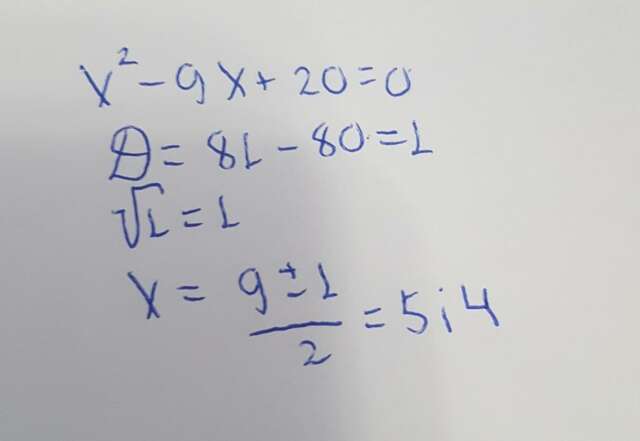 x² - 9x + 20 = 0
D = 81 - 80 = 1
√1 = 1
x = (9 ± 1)/2 = 5; 4